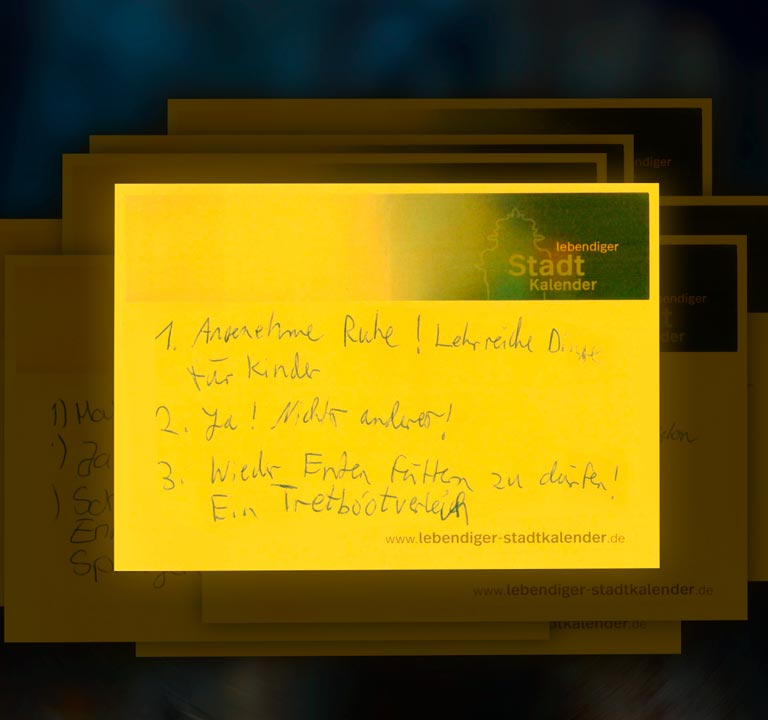 lebendiger
Stadt
Kalender
1. Angenehme Ruhe! Lehrreiche Dinge
für Kinder
2. Ja! Nichts anderes!
3. Wieder Enten füttern zu dürfen!
Ein Tretbootverleih
www.lebendiger-stadtkalender.de
1) Ma
Ja
www.lebendiger-stadtkalender.de
stadtkalender.de